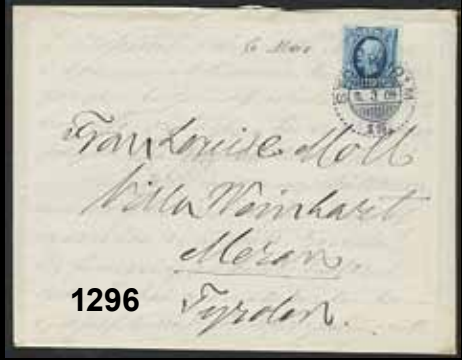 6 Mars
Frau Louise Moll
Villa Weinhart
Meran
Tyrolen.
1296